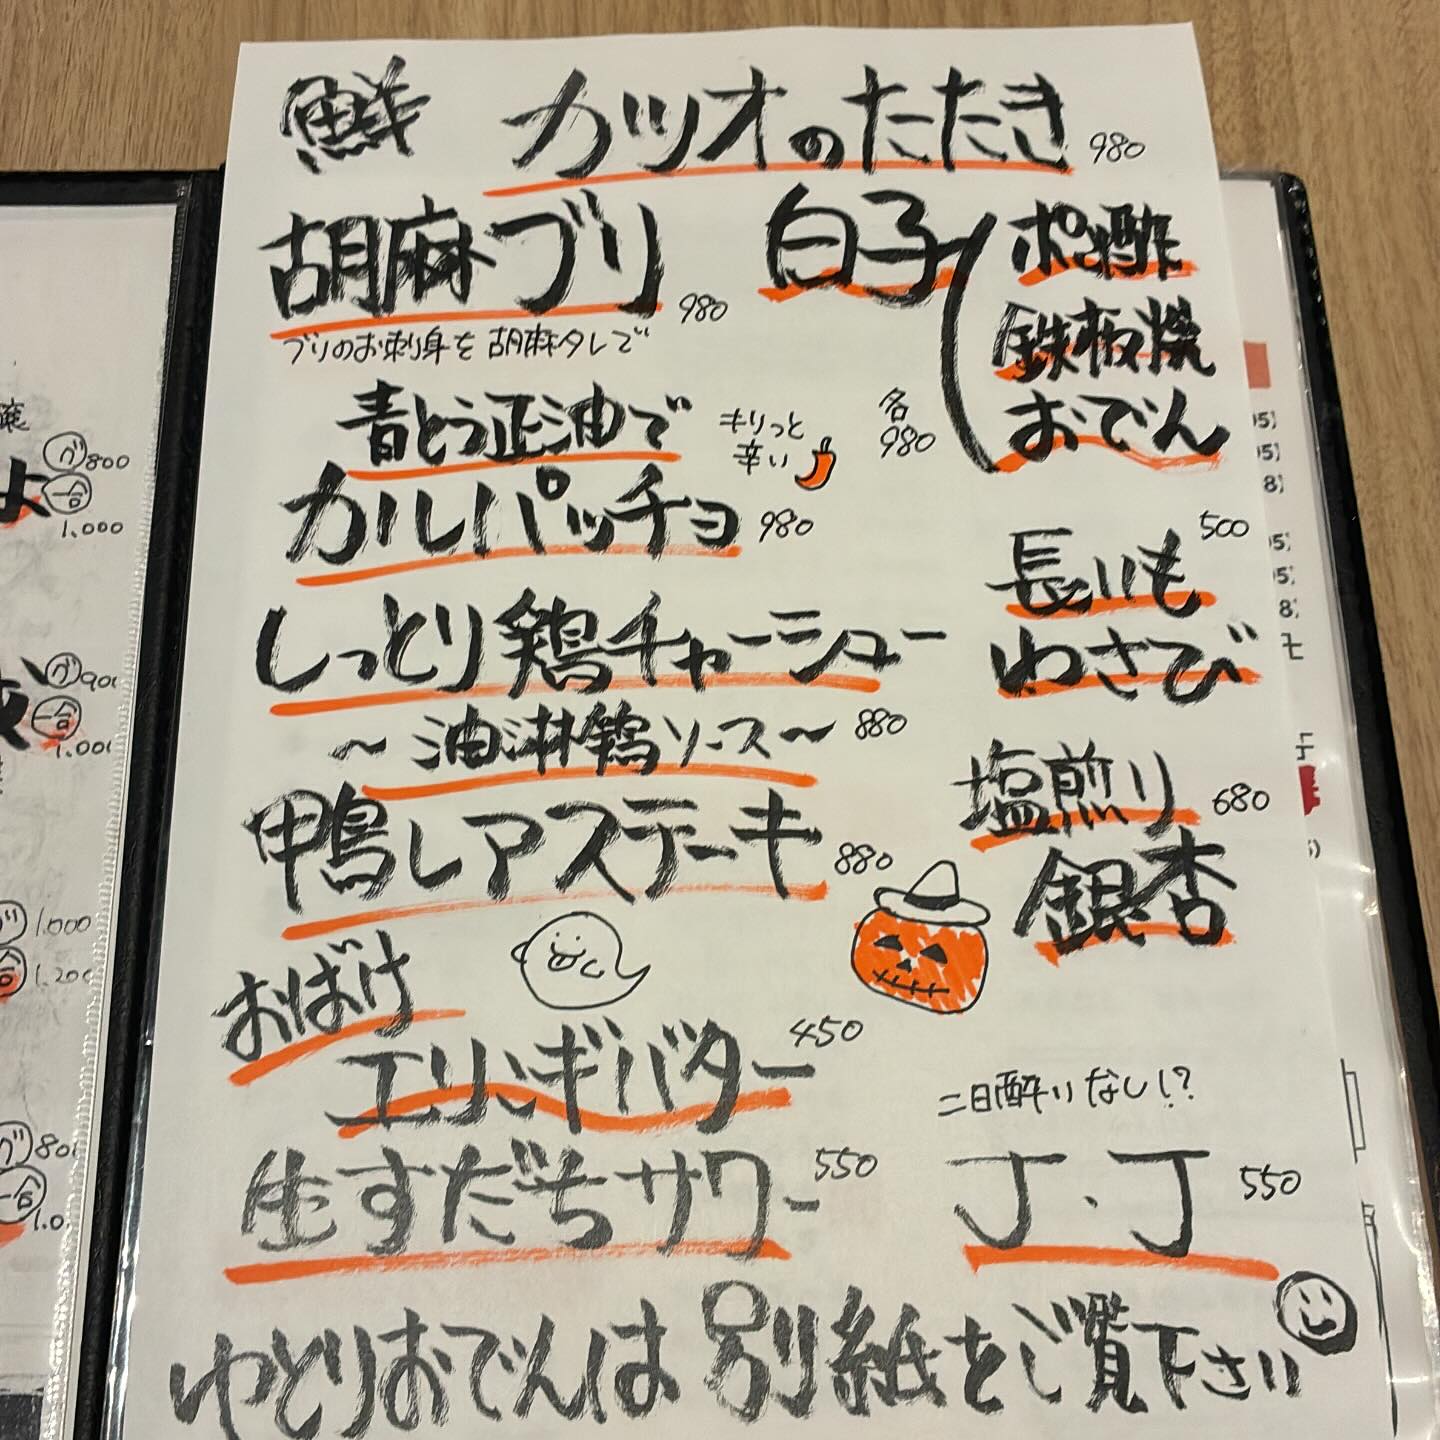 鮮 カツオのたたき 980
胡麻ブリ 980
ブリのお刺身を胡麻タレで
白子
ポン酢
鉄板焼
おでん
各
980
青とう正油で
カルパッチョ 980
キリっと
辛い
長いも
わさび
500
しっとり鶏チャーシュー
～油淋鶏ソース～ 880
塩煎り
銀杏
680
鴨レアステーキ 880
おばけ
エリンギバター 450
生すだちサワー 550
二日酔いなし!?
J・J 550
ゆとりおでんは別紙をご覧下さい
グ 800
一合
1.000
グ 900
一合
1.000
1.000
1.200